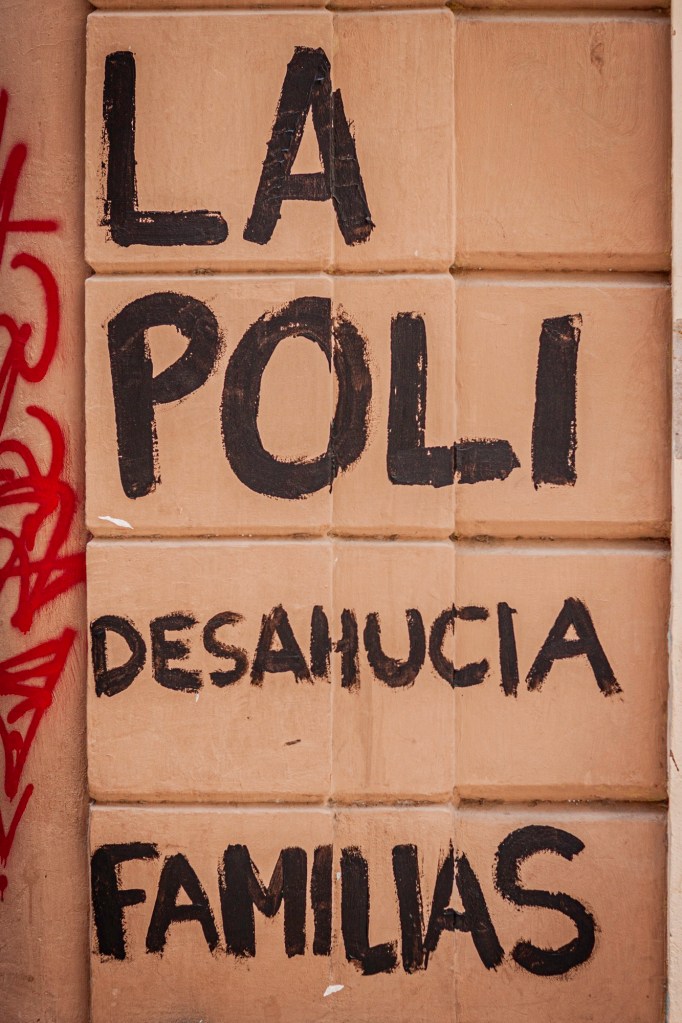 LA
POLI
DESAHUCIA
FAMILIAS